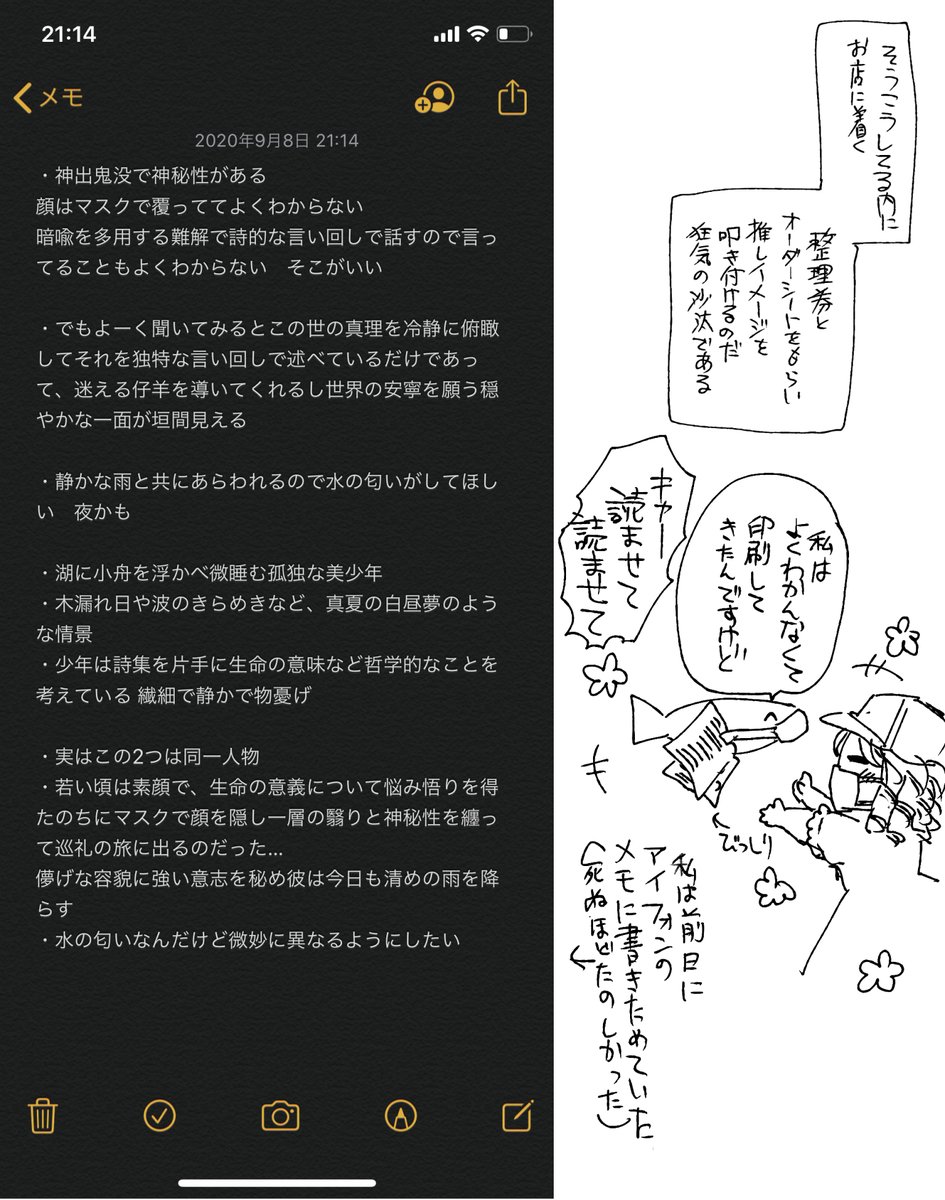 21:14
メモ
2020年9月8日 21:14
・神出鬼没で神秘性がある
顔はマスクで覆っててよくわからない
暗喩を多用する難解で詩的な言い回しで話すので言っ
てることもよくわからない　そこがいい
・でもよーく聞いてみるとこの世の真理を冷静に俯瞰
してそれを独特な言い回しで述べているだけであっ
て、迷える仔羊を導いてくれるし世界の安寧を願う穏
やかな一面が垣間見える
・静かな雨と共にあらわれるので水の匂いがしてほし
い　夜かも
・湖に小舟を浮かべ微睡む孤独な美少年
・木漏れ日や波のきらめきなど、真夏の白昼夢のよう
な情景
・少年は詩集を片手に生命の意味など哲学的なことを
考えている 繊細で静かで物憂げ
・実はこの2つは同一人物
・若い頃は素顔で、生命の意義について悩み悟りを得
たのちにマスクで顔を隠し一層の翳りと神秘性を纏っ
て巡礼の旅に出るのだった...
儚げな容貌に強い意志を秘め彼は今日も清めの雨を降
らす
・水の匂いなんだけど微妙に異なるようにしたい
そうこうしてる内に
お店に着く
整理券と
オーダーシートをもらい
推しイメージを
叩き付けるのだ
狂気の沙汰である
私は
よくわかんなくて
印刷して
きたんですけど
キャー
読ませて
読ませて
びっしり
私は前日に
アイフォンの
メモに書きためていた
(死ぬほどたのしかった)